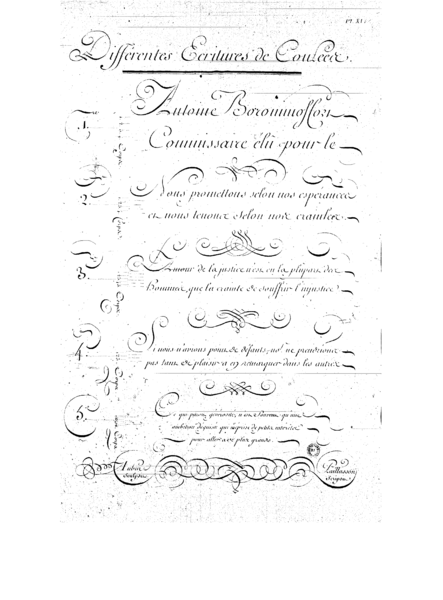 Différentes Ecritures de Coulée.
1.
Antoine
Commissaire élû pour le
2.
Nous promettons selon nos esperances
et nous tenons selon nos craintes.
3.
L'Amour de la justice n'est en la plûpart des
hommes que la crainte de souffrir l'injustice
4.
Si nous n'avions point de défauts, nous ne prendrions
pas tant de plaisir a en remarquer dans les autres
5.
Ce qui paroit générosité, n'est souvent qu'une
ambition déguisée qui méprise de petits intérêts
pour aller a de plus grands.
Aubin
Sculpsit
Paillasson
Scripsit